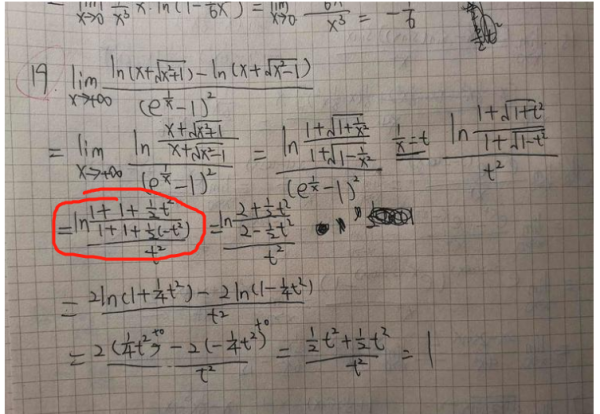 = lim x→0 1/x³ x·ln(1-1/6x²) = lim x→0 x³ = -1/6
19 lim x→+∞ (ln(x+√(x²+1)) - ln(x+√(x²-1))) / (e^(1/x)-1)²
= lim x→+∞ (ln (x+√(x²+1))/(x+√(x²-1))) / (e^(1/x)-1)² = (ln (1+√(1+1/x²))/(1+√(1-1/x²))) / (e^(1/x)-1)² 1/x=t (ln (1+√(1+t²))/(1+√(1-t²))) / t²
= (ln (1+1+½t²)/(1+1+½(-t²))) / t² = (ln (2+½t²)/(2-½t²)) / t²
= (2ln(1+¼t²) - 2ln(1-¼t²)) / t²
= (2(¼t²+0) - 2(-¼t²+0)) / t² = (½t²+½t²) / t² = 1